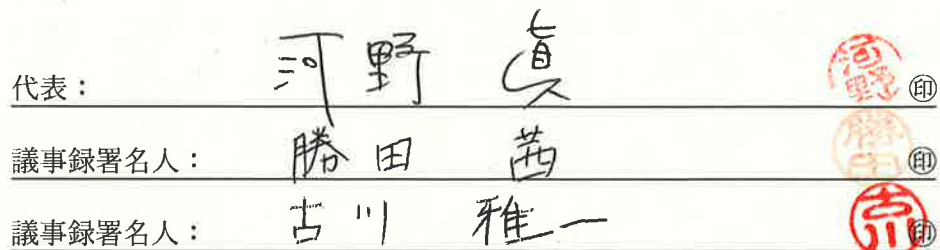 代表： 河野 眞 河野 ㊞
議事録署名人： 勝田 茜 勝田 ㊞
議事録署名人： 古川 雅一 古川 ㊞